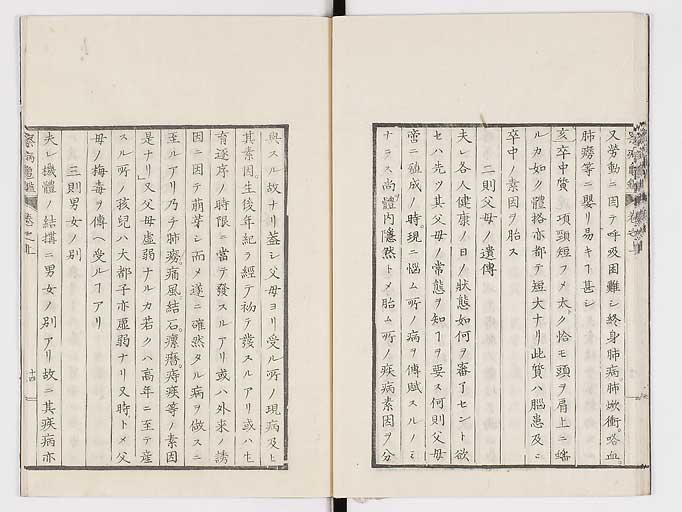 又勞動ニ因テ呼吸困難シ終身肺病肺焮衝咯血
肺癆等ニ嬰リ易キヿ甚シ
亥卒中質 項頸短フメ太ク恰モ頭ヲ肩上ニ
ルカ如ク體格亦都テ短大ナリ此質ハ腦患及ヒ
卒中ノ素因ヲ胎ス
二則父母ノ遺傳
夫レ各人健康ノ日ノ狀態如何ヲ審了セント欲
セハ先ツ其父母ノ常態ヲ知ヿヲ要ス何則父母
啻ニ殖成ノ時現ニ悩ム所ノ病ヲ傳賦スルノミ
ナラス尚ヲ體内隱然トメ胎ム所ノ疾病素因ヲ分
與スル故ナリ蓋シ父母ヨリ受ル所ノ現病及ヒ
其素因生後年紀ヲ經テ初テ發スルアリ或ハ生
育逐序ノ時限ニ當テ發スルアリ或ハ外來ノ誘
因ニ因テ萠芽シ而メ遂ニ確然タル病ヲ做スニ
至ルアリ乃チ肺癆痛風結石瘰癧痔疾等ノ素因
是ナリ又父母虛弱ナルカ若クハ高年ニ至テ産
スル所ノ孩兒ハ大都子亦虛弱ナリ又時トメ父
母ノ梅毒ヲ傳ヘ受ルヿアリ
三則男女ノ別
夫レ機體ノ結搆ニ男女ノ別アリ故ニ其疾病亦
察病龜鑑 卷之上
十四